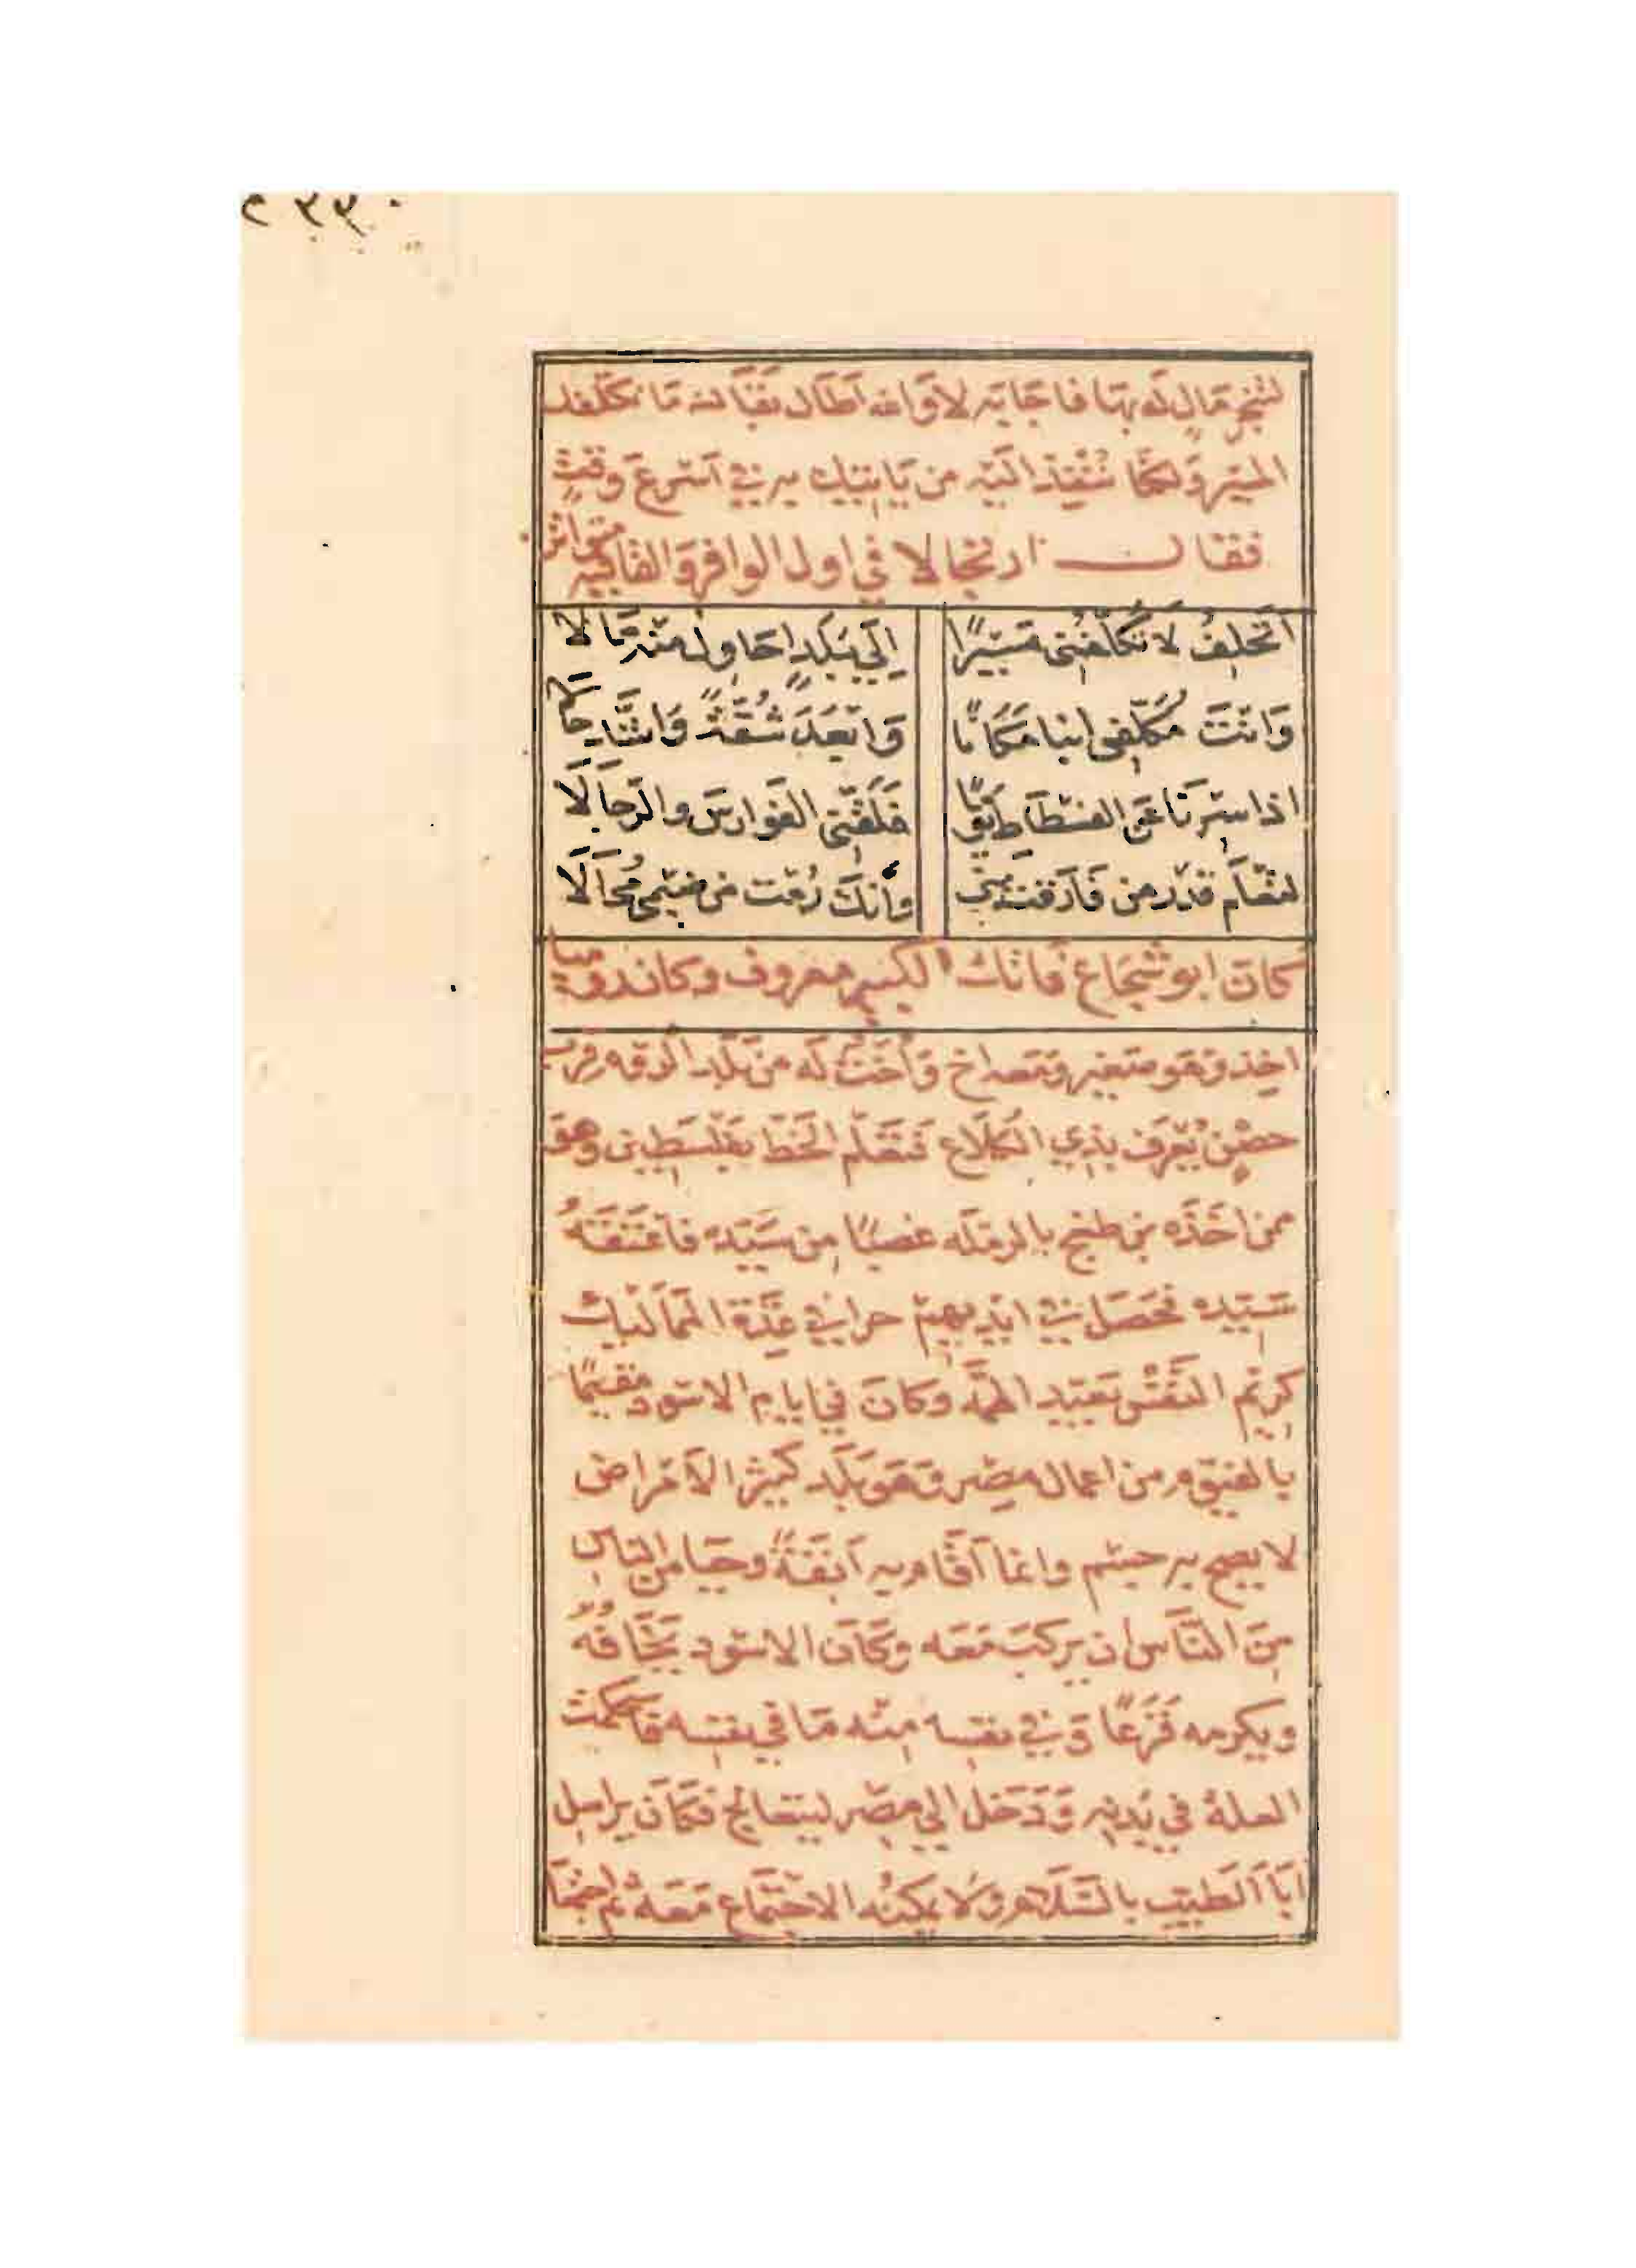 لتنجز مال له بها فاجابه لا والله اطال بقاك ما نكلفك
المسير ولكنا ننفذ اليه من ياتيك به في اسرع وقت
فقال ارتجالا في اول الوافر والقافية متواتر
اتحلف لا تكلفني مسيرا الي بلد احاول منه مالا
وانت مكلفي انبا مكانا وابعد شقة واشد حالا
اذا سرنا عن الفسطاط يوما فلقني الفوارس والرجالا
لتعلم قدر من فارقت مني وانك رمت من ضيمي محالا
كان ابو شجاع فاتك الكبير معروف وكان روميا
اخذ وهو صغير واخ واخت له من بلد الروم قرب
حصن يعرف بذي الكلاع فتعلم الخط بفلسطين وهو
ممن اخذه بن طغج بالرمله غصبا من سيده فاعتقه
سيده فحصل في ايديهم حرا في عدة المماليك
كريم النفس بعيد الهمة وكان في ايام الاسود مقيما
بالفيوم من اعمال مصر وهو بلد كثير الامراض
لا يصح به جسم وانما اقام به انفة وحيا من الناس
من الناس ان يركب معه وكان الاسود يخافه
ويكرمه فزعا وفي نفسه منه ما في نفسه فاستحكمت
العلة في بدنه ودخل الي مصر ليتعالج فكان يراسل
ابا الطيب بالسلام ولا يمكنه الاجتماع معه ثم اجتمعا